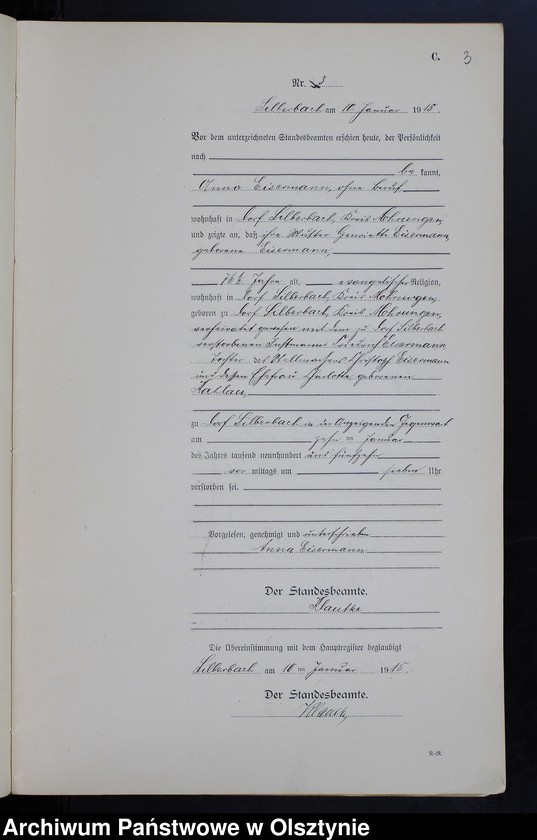 C. 3
Nr. 3
Silberbach am 10. Januar 1915.
Vor dem unterzeichneten Standesbeamten erschien heute, der Persönlichkeit
nach
be kannt,
Anna Eisermann, ohne Beruf
wohnhaft in Dorf Silberbach, Kreis Mohrungen,
und zeigte an, daß ihre Mutter Henriette Eisermann,
geborene Eisermann,
76½ Jahre alt, evangelischer Religion,
wohnhaft in Dorf Silberbach, Kreis Mohrungen,
geboren zu Dorf Silberbach, Kreis Mohrungen,
verheiratet gewesen mit dem zu Dorf Silberbach
verstorbenen Instmann Friedrich Eisermann
Tochter des Stellmachers Christoph Eisermann
und dessen Ehefrau Charlotte geborenen
Kahlau,
zu Dorf Silberbach in der Anzeigenden Gegenwart
am zehn ten Januar
des Jahres tausend neunhundert und fünfzehn
vor mittags um sieben Uhr
verstorben sei.
Vorgelesen, genehmigt und unterschrieben
Anna Eisermann
Der Standesbeamte.
Klautke
Die Übereinstimmung mit dem Hauptregister beglaubigt
Silberbach am 10 ten Januar 1915.
Der Standesbeamte.
Archiwum Państwowe w Olsztynie